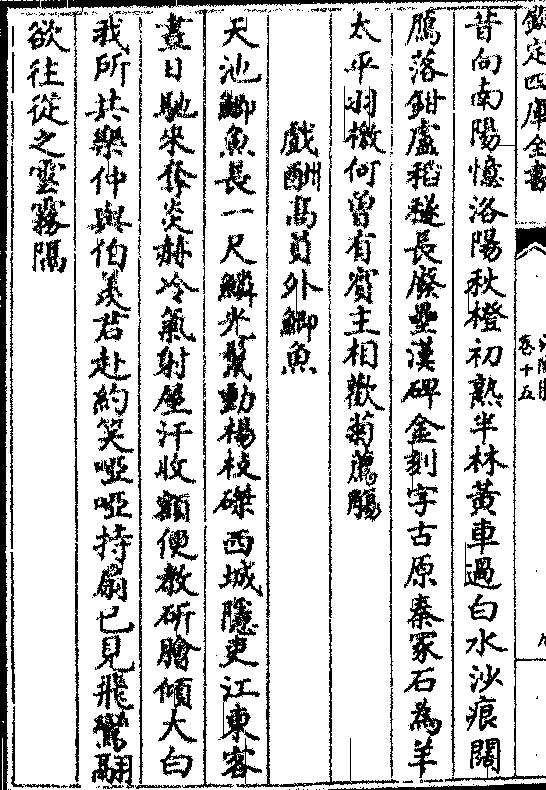 欽定四庫全書
卷十五
昔向南陽憶洛陽秋橙初熟半林黃車過白水沙痕闊
鴈落鉗盧稻穟長廢壘漢碑金刻字古原秦冢石為羊
太平羽檄何曾有賓主相歡菊薦觴
戲酬高員外鯽魚
天池鯽魚長一尺鱗光鬣動楊枝磔西城隱吏江東客
晝日馳來奪炎赫冷氣射屋汗收額便教斫膾傾大白
我所共樂仲與伯羨君赴約笑啞啞持扇已見飛鸞翮
欲往從之雲霧隔